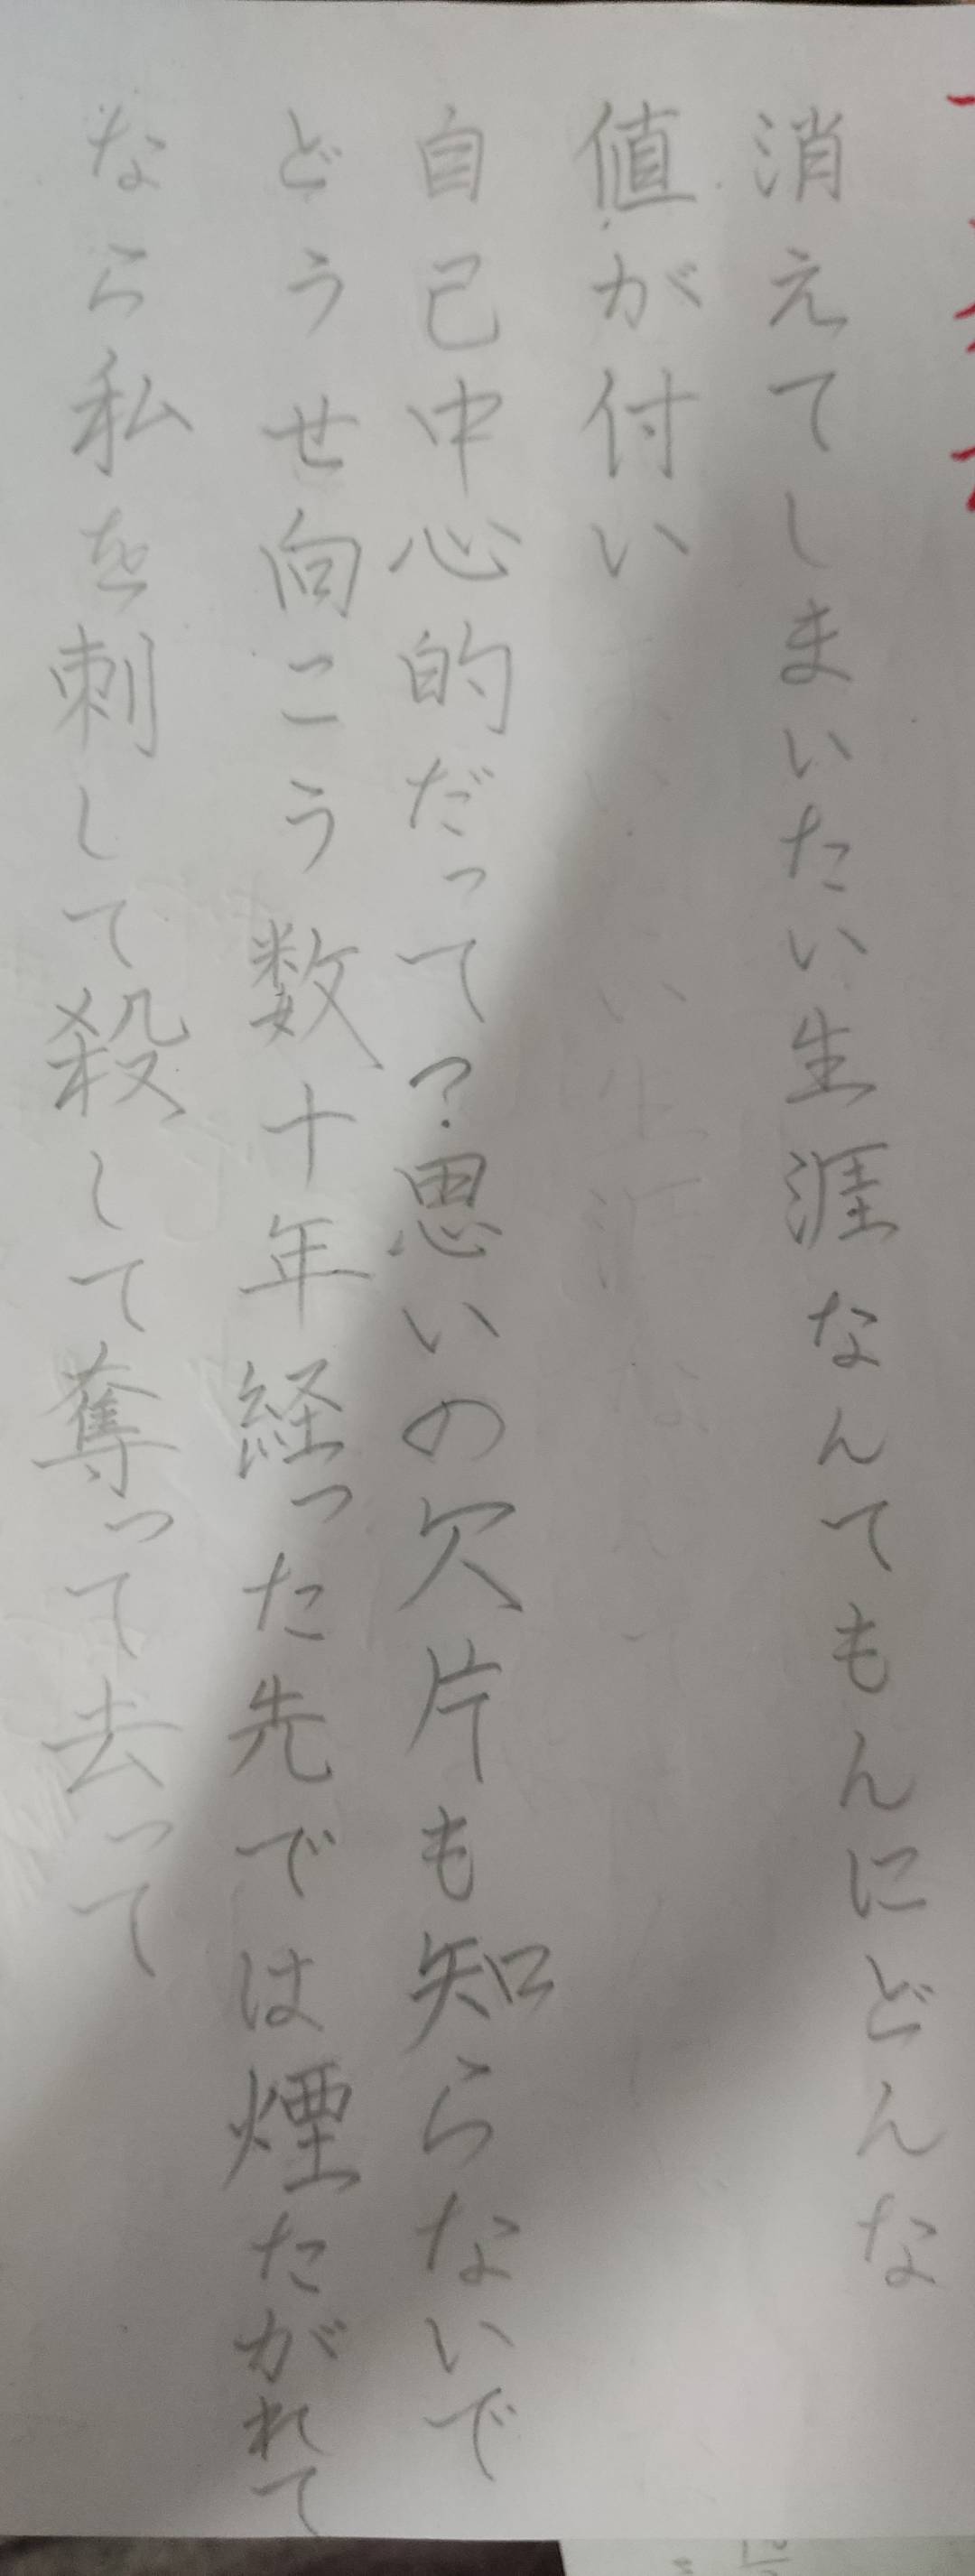 消えてしまいたい生涯なんてもんにどんな
値が付い
自己中心的だって?思いの欠片も知らないで
どうせ向こう数十年経った先では煙たがれて
なら私を刺して殺して奪って去って